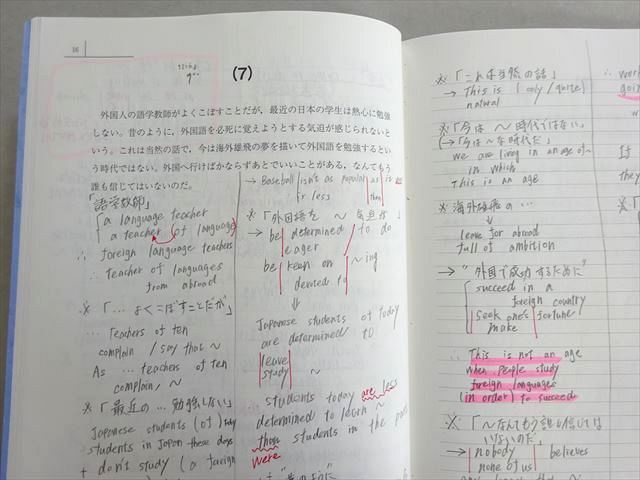 16
(7)
外国人の語学教師がよくこぼすことだが、最近の日本の学生は熱心に勉強
しない。昔のように、外国語を必死に覚えようとする気迫が感じられないと
いう。これは当然の話で、今は海外雄飛の夢を描いて外国語を勉強するとい
う時代ではない。外国へ行けばかならずあとでいいことがある、なんてもう
誰も信じてはいないのだ。
「語学教師」
a language teacher
a teacher of language
∴ foreign language teachers
∴ teacher of languages
from abroad
※「…よくこぼすことだが」
… Teachers often
complain / say that ~
As … teachers often
complain, ~
※「最近の…勉強しない」
Japanese students (of)
students in Japan these days
+ don't study (a foreign
→ Baseball isn't as popular as is
or less than
※「外国語を ~ 気迫が」
→ be determined to do
eager
be keen on ~ing
devoted to
⇓
Japanese students of today
are determined to
leave
study ~
students today are less
determined to learn ~
than students in the past
were
※「これは当然の話」
→ This is (only / quite)
natural
※「今は ~ 時代ではない」
(→「今は~な時代だ」
we are living in an age of~
in which
This is an age
※ 海外雄飛の…
↓
leave for abroad
full of ambition
→ "外国で成功するために"
succeed in a
foreign country
seek one's fortune
make
∴ This is not an age
when people study
foreign languages
(in order) to succeed
※「~なんてもう誰も信じては
いないのだ」
→ nobody believes
none of us
∴ work
going
If
they